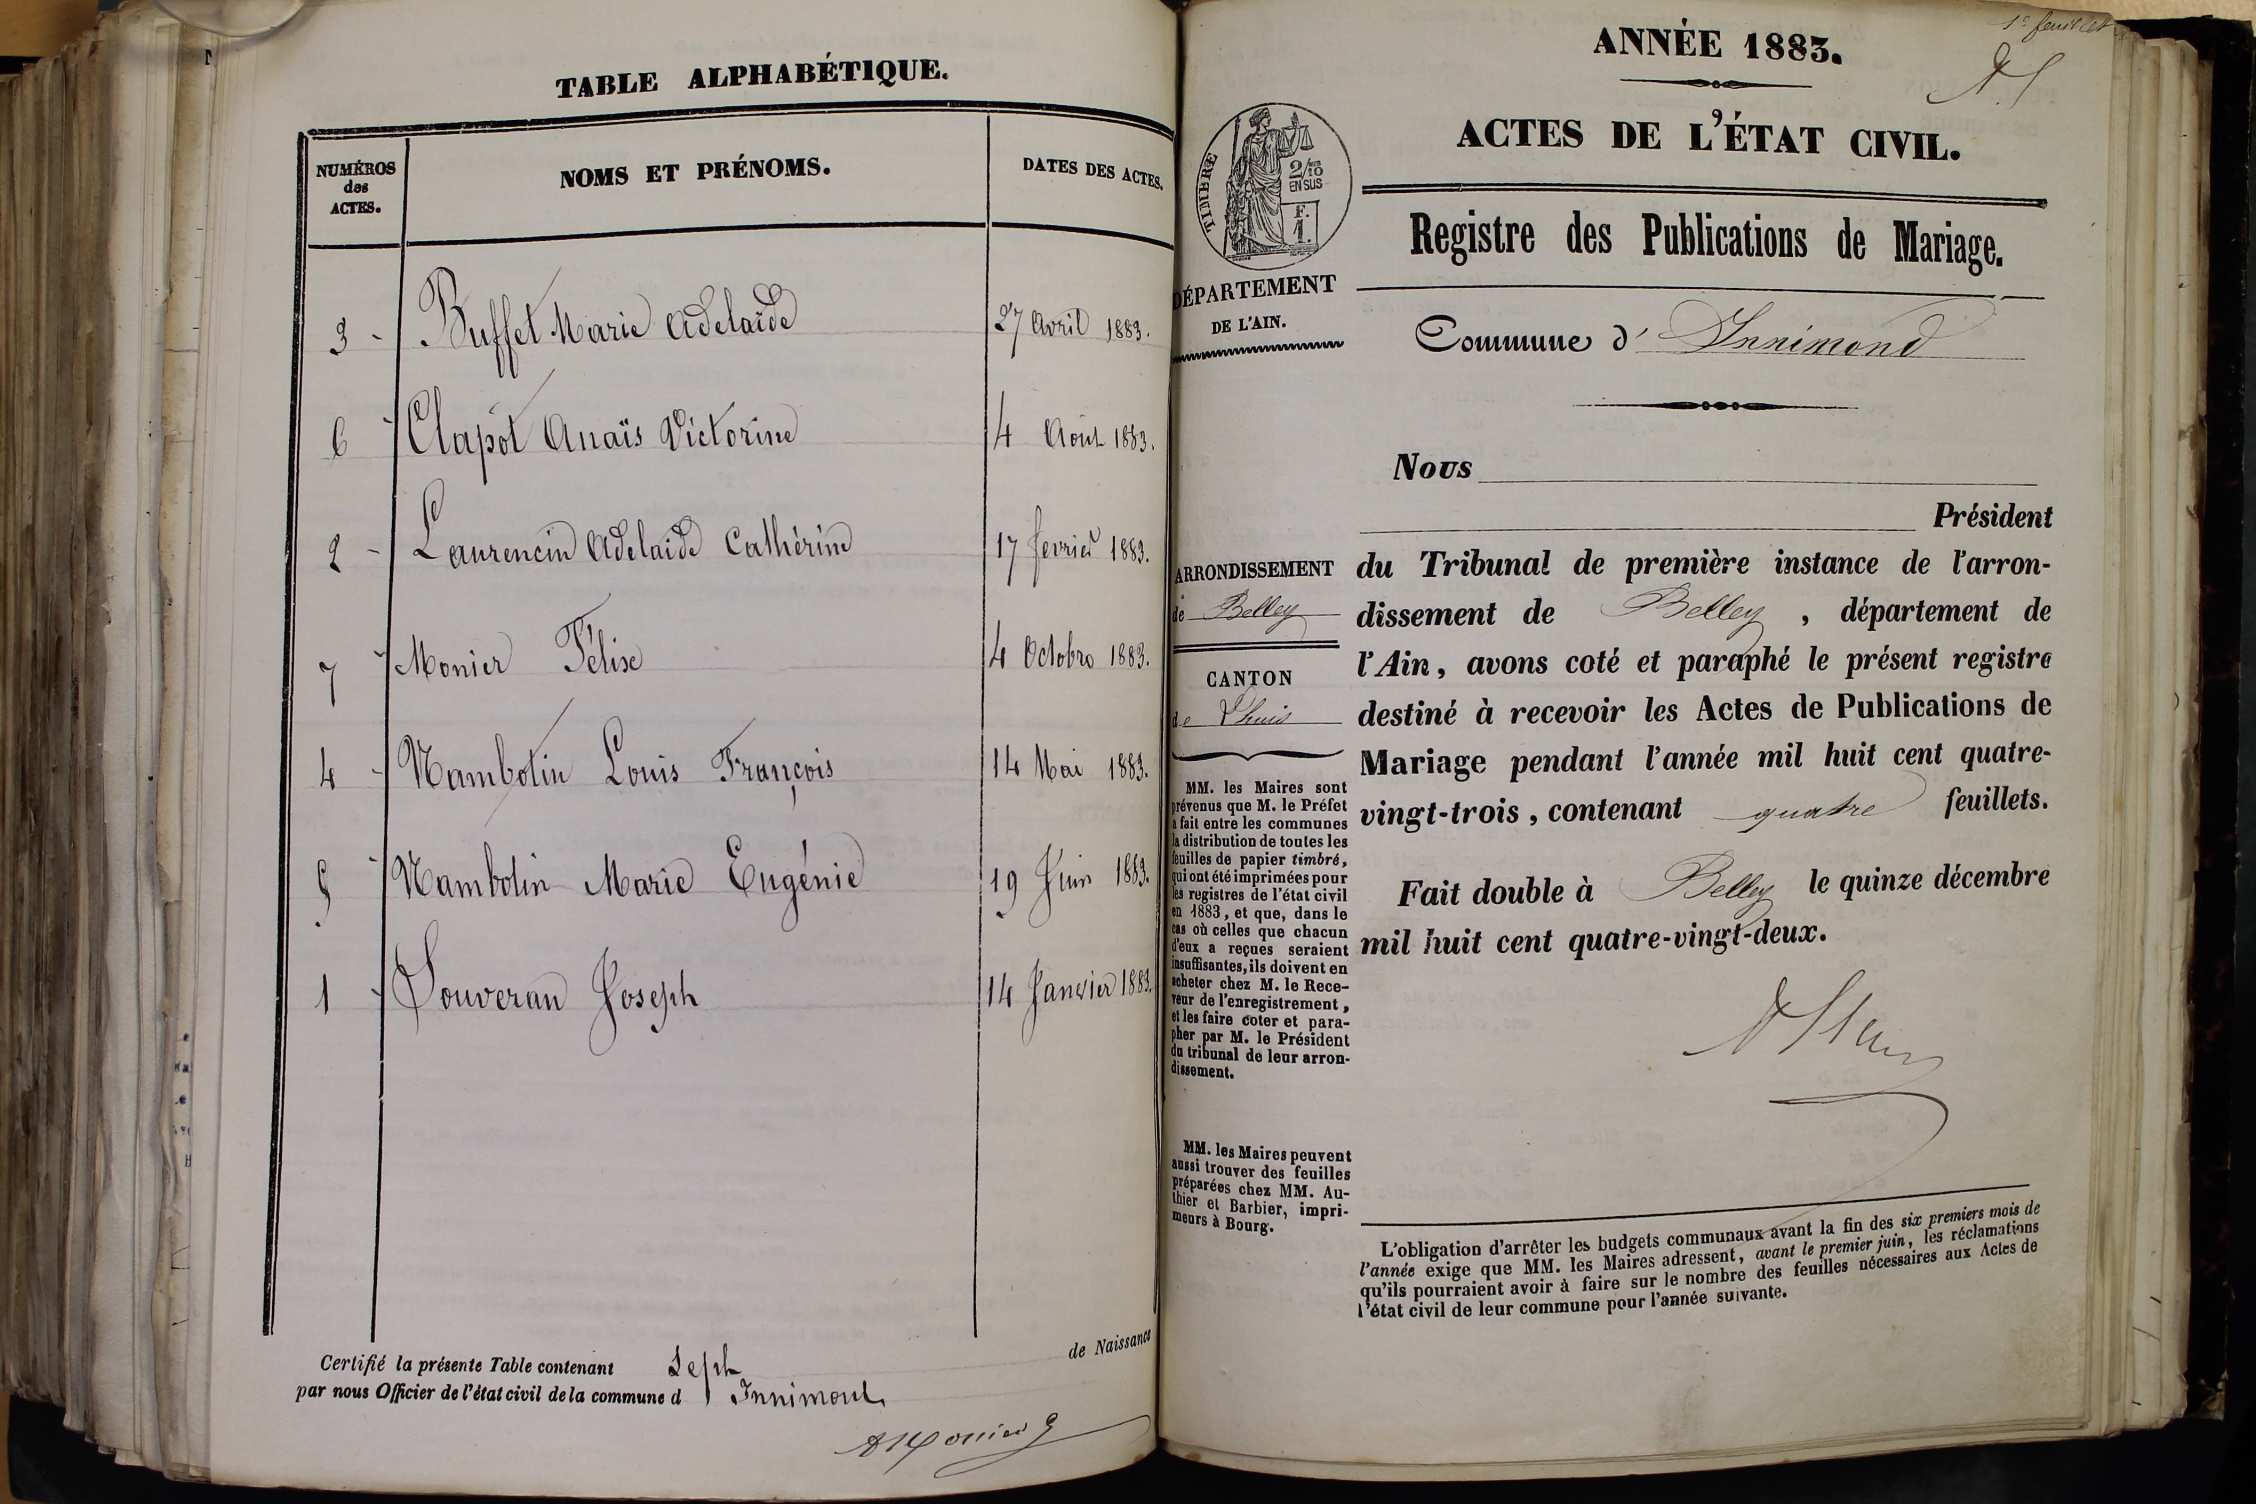 TABLE ALPHABÉTIQUE.
NUMÉROS
des
ACTES.
NOMS ET PRÉNOMS.
DATES DES ACTES.
3 - Buffet Marie Adelaïde 27 Avril 1883.
6 - Clapot Anaïs Victorine 4 Aout 1883.
2 - Laurencin Adelaide Cathérine 17 fevrier 1883.
7 - Monier Félise 4 Octobre 1883.
4 - Nambotin Louis François 14 Mai 1883.
5 - Nambotin Marie Eugénie 19 Juin 1883.
1 - Souveran Joseph 14 Janvier 1883.
Certifié la présente Table contenant Sept de Naissance
par nous Officier de l'état civil de la commune d Innimont
1er feuillet
ANNÉE 1883.
ACTES DE L'ÉTAT CIVIL.
TIMBRE
2/10
EN SUS
F.
1.
Registre des Publications de Mariage.
DÉPARTEMENT
DE L'AIN.
Commune d' Innimond
Nous
Président
ARRONDISSEMENT
de Belley
CANTON
de Lhuis
du Tribunal de première instance de l'arron-
dissement de Belley, département de
l'Ain, avons coté et paraphé le présent registre
destiné à recevoir les Actes de Publications de
Mariage pendant l'année mil huit cent quatre-
vingt-trois, contenant quatre feuillets.
Fait double à Belley le quinze décembre
mil huit cent quatre-vingt-deux.
MM. les Maires sont
prévenus que M. le Préfet
a fait entre les communes
la distribution de toutes les
feuilles de papier timbré,
qui ont été imprimées pour
les registres de l'état civil
en 1883, et que, dans le
cas où celles que chacun
d'eux a reçues seraient
insuffisantes, ils doivent en
acheter chez M. le Rece-
veur de l'enregistrement,
et les faire coter et para-
pher par M. le Président
du tribunal de leur arron-
dissement.
MM. les Maires peuvent
aussi trouver des feuilles
préparées chez MM. Au-
thier et Barbier, impri-
meurs à Bourg.
L'obligation d'arrêter les budgets communaux avant la fin des six premiers mois de
l'année exige que MM. les Maires adressent, avant le premier juin, les réclamations
qu'ils pourraient avoir à faire sur le nombre des feuilles nécessaires aux Actes de
l'état civil de leur commune pour l'année suivante.